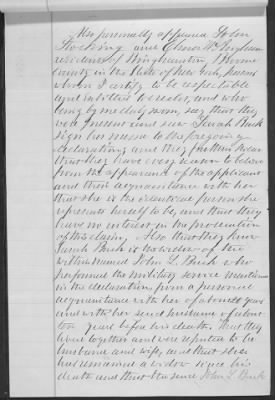 Also personally appeared John
Stocking and Elmer W. Brigham
residents of Binghamton, Broome
County in the State of New York, persons
whom I certify to be respectable
and entitled to credit, and who
being by me duly sworn, say that they
were present and saw Sarah Buck
sign her name to the foregoing
declaration; and they further swear
that they have every reason to believe
from the appearance of the applicant
and their acquaintance with her
that she is the identical person she
represents herself to be, and that they
have no interest in the prosecution
of this claim. Also that they know
Sarah Buck is the widow of the
within named John L. Buck who
performed the military service mentioned
in the declaration, from a personal
acquaintance with her of about years
and with her said husband of about
ten years before his death. That they
lived together and were reputed to be
husband and wife, and that she
has remained a widow since his
death and that the said John L. Buck